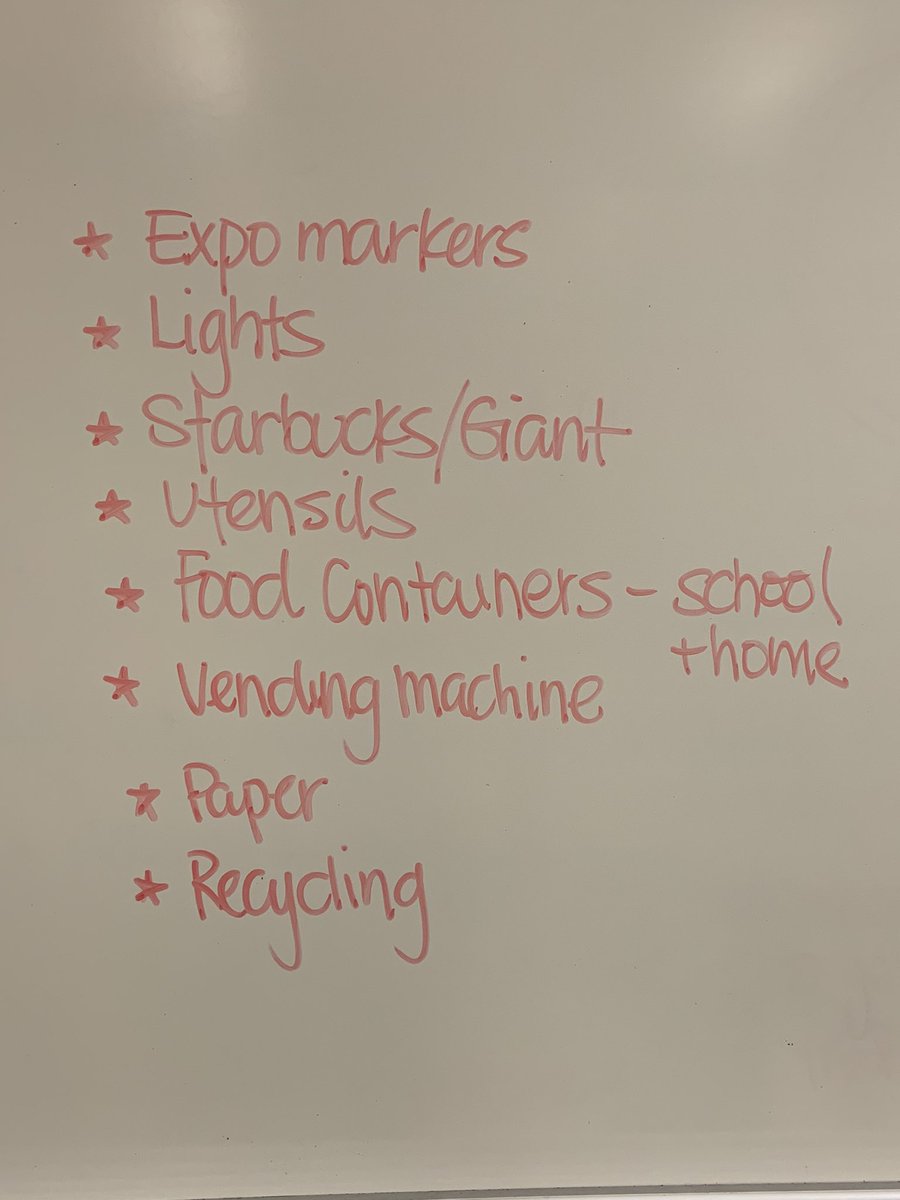 * Expo markers
* Lights
* Starbucks/Giant
* Utensils
* Food Containers - school
+ home
* Vending machine
* Paper
* Recycling